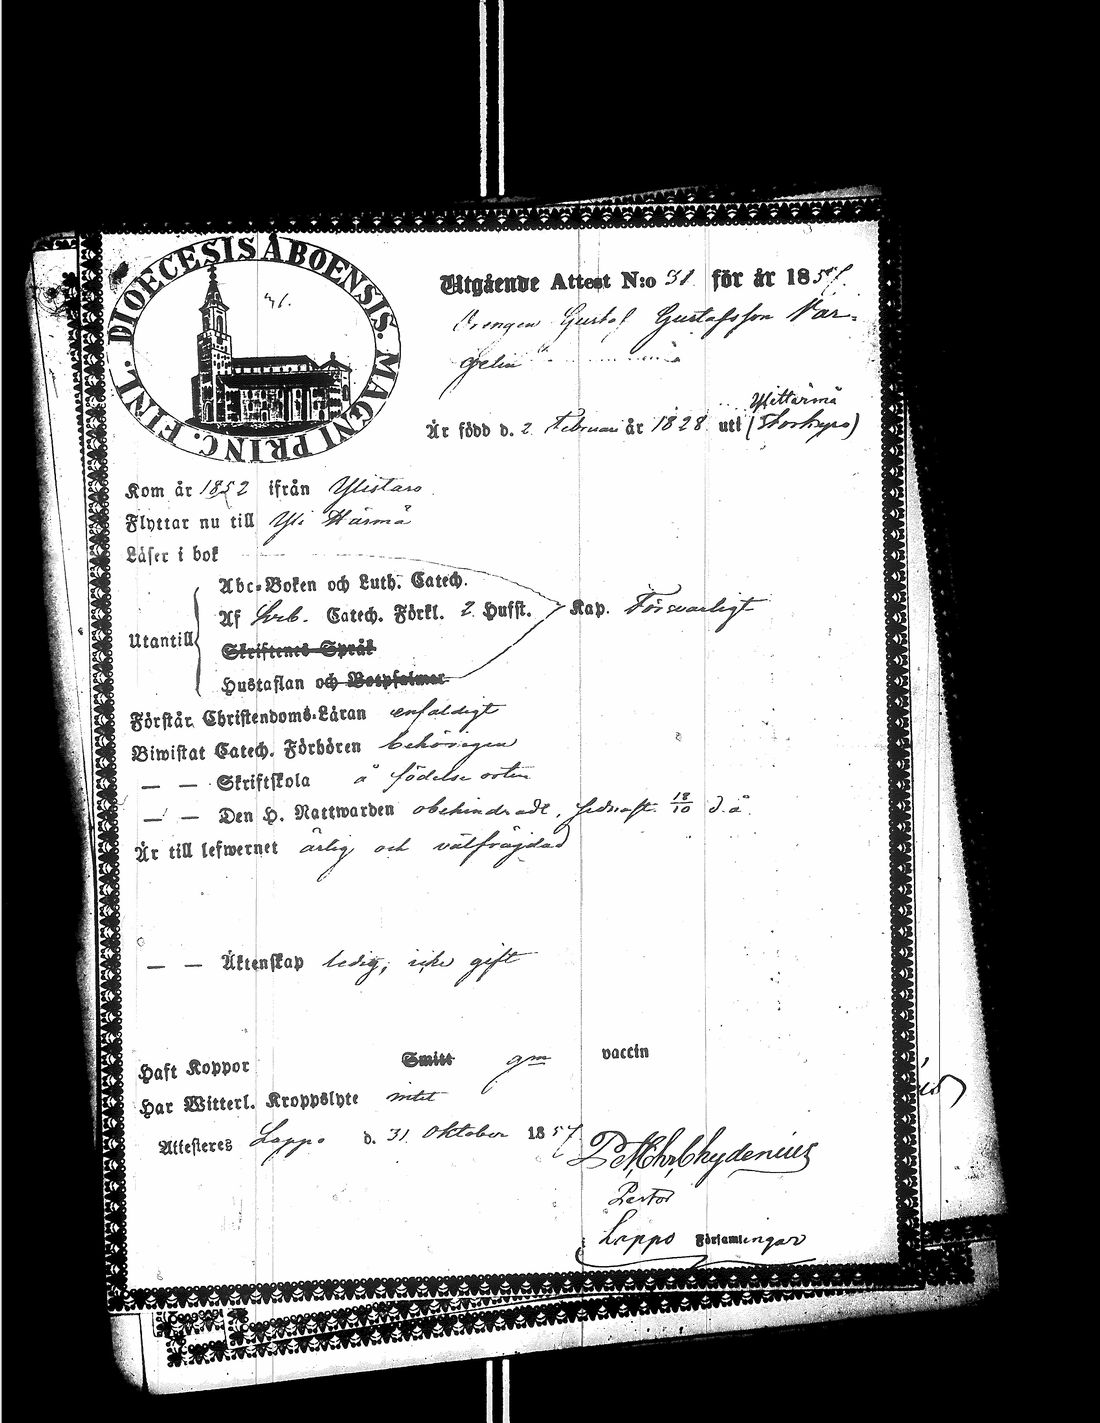 DIOECESIS ÅBOENSIS. MAGNI PRINC. FINL.
41.
Utgående Attest N:o 31 för år 1857.
Drengen Gustaf Gustafsson Var-
gelin
Ylihärmä
Är född d. 2 Februari år 1828 uti (Storkyro)
Kom år 1852 ifrån Ylistaro
Flyttar nu till Yli Härmä
Läser i bok
Abc-Boken och Luth. Catech.
Utantill Af Sveb. Catech. Förkl. 2 Hufst. Kap. Försvarligt
Skriftenes Språk
Hustaflan och Botpsalmer
Förstår Christendoms-Läran enfaldigt
Biwistat Catech. Förhören behörigen
— — Skriftskola å födelse orten
— — Den H. Nattwarden obehindradt, sednast 18/10 d.å.
Är till lefwernet ärlig och välfrägdad
— — Äktenskap ledig, icke gift
Haft Koppor Smitt gm vaccin
Har Witterl. Kroppslyte intet
Attesteres Lappo d. 31 Oktober 1857
Chydenius
Pastor
Lappo Församlingar